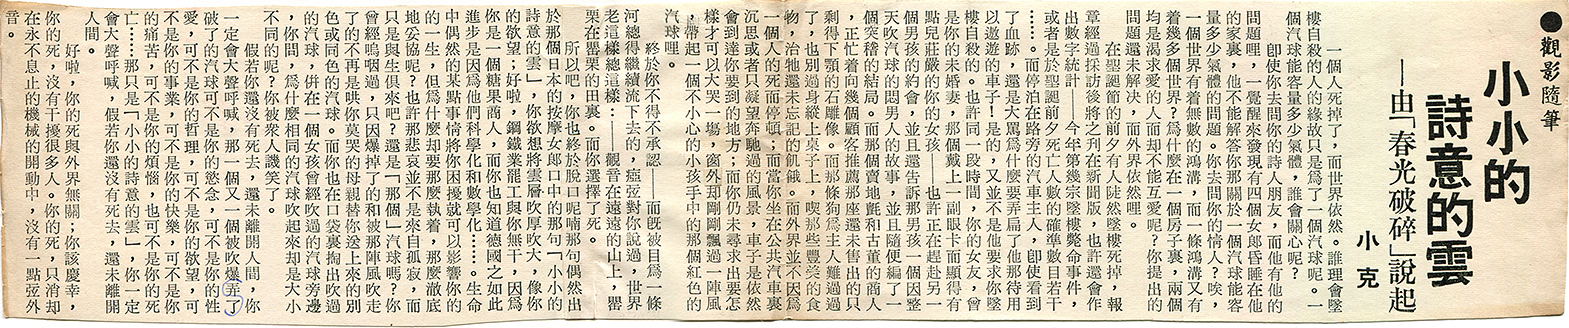 ●觀影隨筆
小小的
詩意的雲
——由「春光破碎」說起
小克
一個人死掉了，而世界依然。誰理會墜
樓自殺的人的緣故只是爲了一個汽球呢。一
個汽球能容量多少氣體，誰會關心呢？
即使你去問你的詩人朋友，而他有他的
問題哩，一覺醒來發現有四個女郎昏睡在他
的家裏，他不能解答你那關於一個汽球能容
量多少氣體的問題。你去問你的情人？唉，
一個世界有着無數的鴻溝，而一條鴻溝又有
着幾多個世界？爲什麼在一個房子裏，兩個
均是渴求愛的人而却不能互愛呢？你提出的
問題還未解決，而外界依然哩。
在聖誕節的前夕有人陡然墜樓死掉，報
章經過採訪後將之刊在新聞版，也許還會作
出數字統計——今年第幾宗墜樓斃命事件，
或者是於聖誕前夕死亡人數的確準數目若干
……。而停泊在路旁的汽車主人，即使看到
了血跡，還是大罵爲什麼要弄扁了他那待用
以遨遊的車子！是的，又並不是他要求你墜
樓自殺的。也許同一段時間，你的女友，曾
是你的未婚妻，那個戴上一副眼卡而顯得有
點兒莊嚴的你的女孩——也許正在趕赴另一
個男孩的約會，並且還告訴那男孩一個因整
天吹汽球的悶男人的故事，並且隨便編了一
個突稽的結局。而那個賣地氈和古董的商人
，正忙着向幾個顧客推薦那座還未售出的只
剩得下顎的石雕像。而那條狗爲主人難過過
了，也別過身縱上桌子上，喫那些豐美的食
物，治牠還未忘記的飢餓。而外界並不因爲
一個人的死而停頓；而當你坐在公共汽車裏
沉思或者只凝望奔馳過的風景，車子是依然
會到達你要到的地方；而你仍未尋求出要怎
樣才可以大哭一場，窗外却剛剛飄過一陣風
，帶起一個不小心的小孩手中的那個紅色的
汽球哩。
終於你不得不承認——而旣被目爲一條
河總得繼續流下去的，瘂弦對你說過，世界
老這樣總這樣：——觀音在遠遠的山上，罌
粟在罌粟的田裏。而你選擇了死。
所以吧，你也終於脫口呢喃那句偶然出
於那個日本的按摩女郎口中的那句「小小的
詩意的雲」，你欲想將雲層吹厚吹大，像你
的欲望；好啦，鋼鐵業罷工與你無干，因爲
中偶然的某點事情將你困擾就可以影響你的
進步是因爲他們科學化和數學化……。生命
的一生，但爲什麼却要那麼執着，那麼澈底
地不妥協呢？也許那悲哀並不是來自孤寂，而
只是與生俱來吧？還是「那個」汽球嗎？你
曾經嗚咽過，只因爆掉了的和被那陣風吹走
了的不再是哄你莫哭的母親替你送上來的別
色或同色的汽球。而你也在口袋裏掏出吹過
的汽球，倂在一個女孩曾經吹過的汽球旁邊
，你問，爲什麼相同的汽球吹起來却是大小
不同的呢？你被衆人譏笑了。
假若你還沒有死去，還未離開人間，你
一定會大聲呼喊，那一個又一個被吹爆弄了
破了的汽球可不是你的慾念，可不是你的性
愛，可不是你的哲理，可不是你的欲望，可
不是你的事業，可不是你的快樂，可不是你
的痛苦，可不是你的煩惱，也可不是你的死
亡……那只是「小小的詩意的雲」，你一定
會大聲呼喊，假若你還沒有死去，還未離開
人間。
好啦，你的死與外界無關；你該慶幸，
你的死，沒有干擾很多人。你的死，只消却
在永不息止的機械的開動中，沒有一點弦外
音。